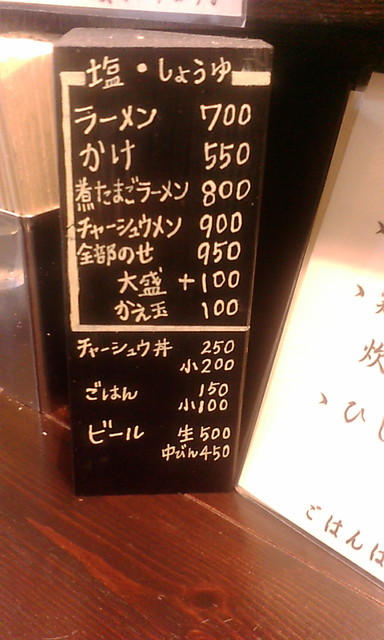 塩・しょうゆ
ラーメン 700
かけ 550
煮たまごラーメン 800
チャーシュウメン 900
全部のせ 950
大盛 +100
かえ玉 100
チャーシュウ丼 250
小200
ごはん 150
小100
ビール 生500
中びん450
炊
、ひ
ごはんは